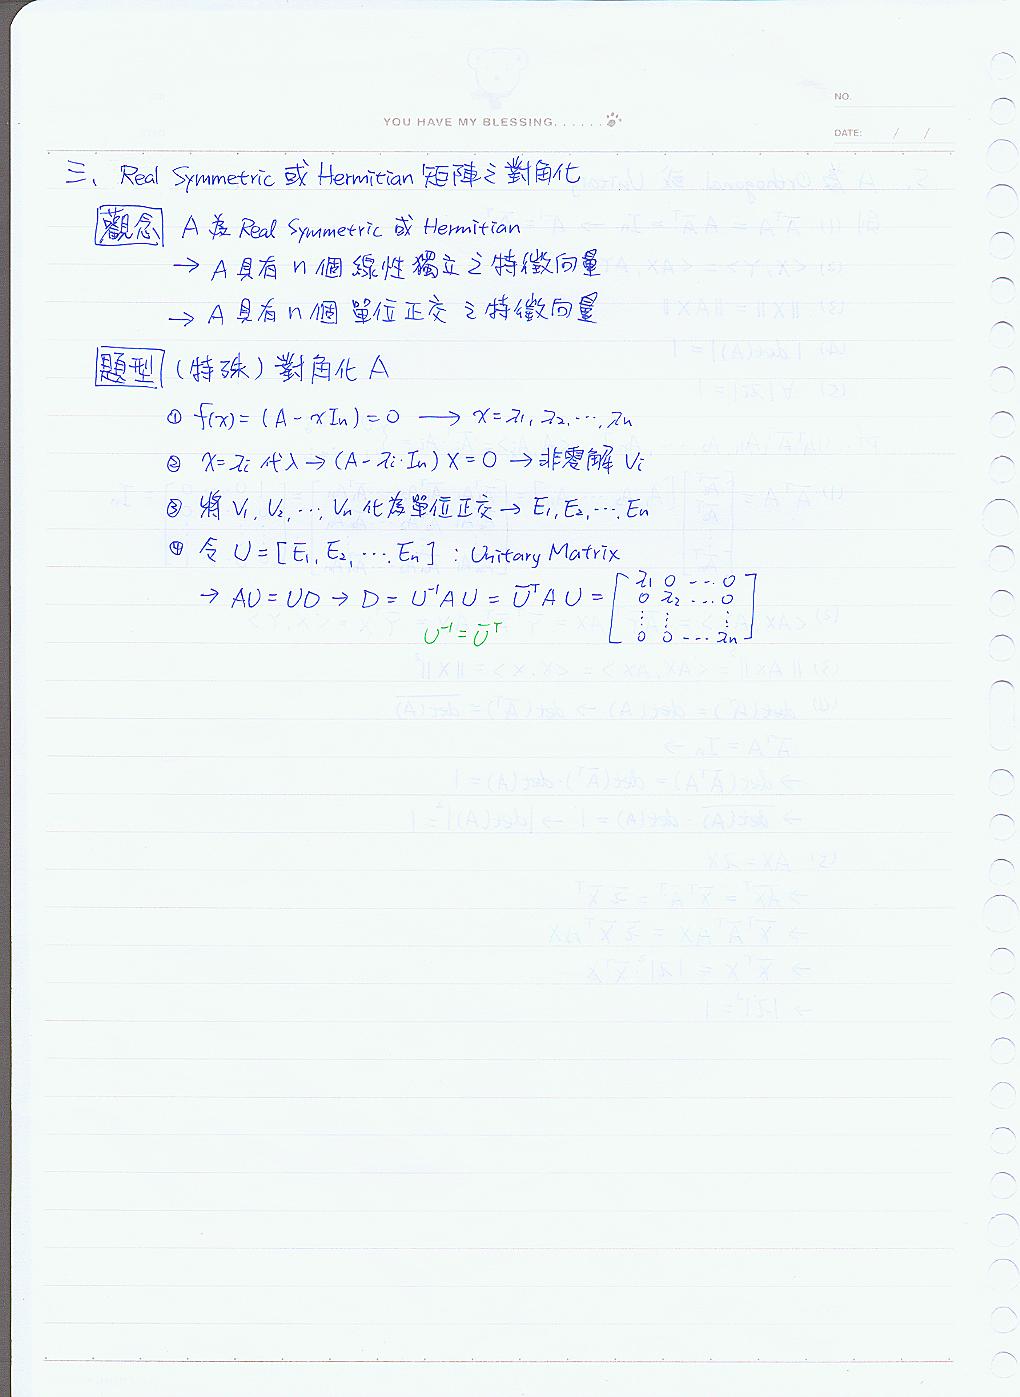 YOU HAVE MY BLESSING......
NO.
DATE: / /
三、Real Symmetric 或 Hermitian 矩陣之對角化
觀念 A 為 Real Symmetric 或 Hermitian
→ A 具有 n 個線性獨立之特徵向量
→ A 具有 n 個單位正交之特徵向量
題型 (特殊) 對角化 A
① f(x) = (A - xIn) = 0 → x = λ1, λ2, ..., λn
② x = λi 代入 → (A - λi·In) X = 0 → 非零解 Vi
③ 將 V1, V2, ..., Vn 化為單位正交 → E1, E2, ... En
④ 令 U = [E1, E2, ... En] : Unitary Matrix
→ AU = UD → D = U⁻¹AU = U̅ᵀAU = [λ1 0 ... 0
0 λ2 ... 0
⋮ ⋮ ⋮
0 0 ... λn]
U⁻¹ = U̅ᵀ